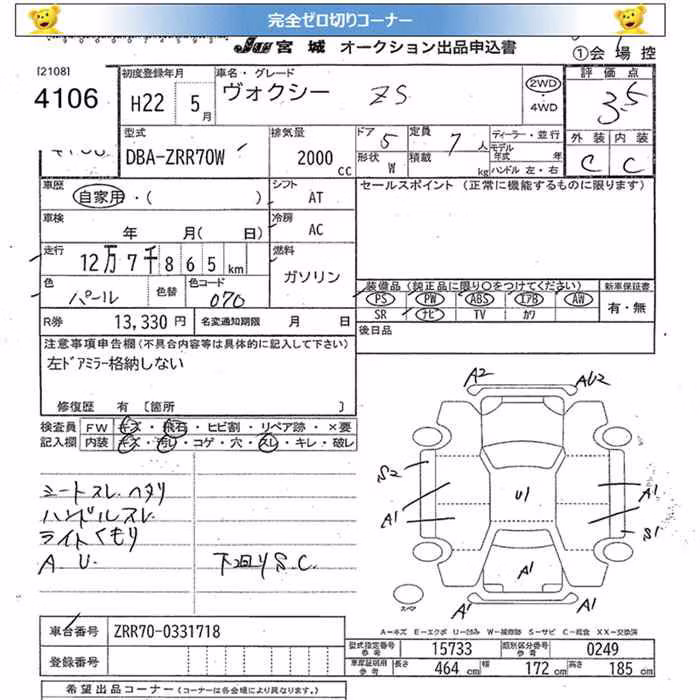 完全ゼロ切りコーナー
JU宮城 オークション出品申込書
①会場控
[2108]
4106
初度登録年月
H22 5月
車名・グレード
ヴォクシー ZS
2WD
・
4WD
評価点
3.5
型式
DBA-ZRR70W
排気量
2000 CC
ドア 5
形状 W
定員 7 人
積載 kg
ディーラー・並行
モデル年式 年
ハンドル 左・右
外装 内装
C C
車歴
自家用・( )
シフト
AT
セールスポイント (正常に機能するものに限ります)
車検
年 月( 日)
冷房
AC
走行
12万7千865km
燃料
ガソリン
色
パール
色替
色コード
070
装備品 (純正品に限り○をつけてください)
新車保証書
PS PW ABS エアB AW
SR ナビ TV カワ
有・無
R券 13,330 円
名変通知期限 月 日
後日品
注意事項申告欄(不具合内容等は具体的に記入して下さい)
左ドアミラー格納しない
修復歴 有 [箇所 ]
検査員記入欄
FW キズ・飛石・ヒビ割・リペア跡・×要
内装 キズ・汚レ・コゲ・穴・スレ・キレ・破レ
シートスレ.ヘタリ
ハンドルスレ
ライトくもり
A U.
下回りS.C.
A2
AU2
S2
A1
U1
A1
S1
A1
A1
A1
スペア
A－キズ E－エクボ U－凹み W－補修跡 S－サビ C－腐食 XX－交換済
車台番号 ZRR70-0331718
登録番号
型式指定番号参考 15733
類別区分番号参考 0249
車庫証明用参考 長さ 464 cm 幅 172 cm 高さ 185 cm
希望出品コーナー (コーナーは各会場により異なります。)